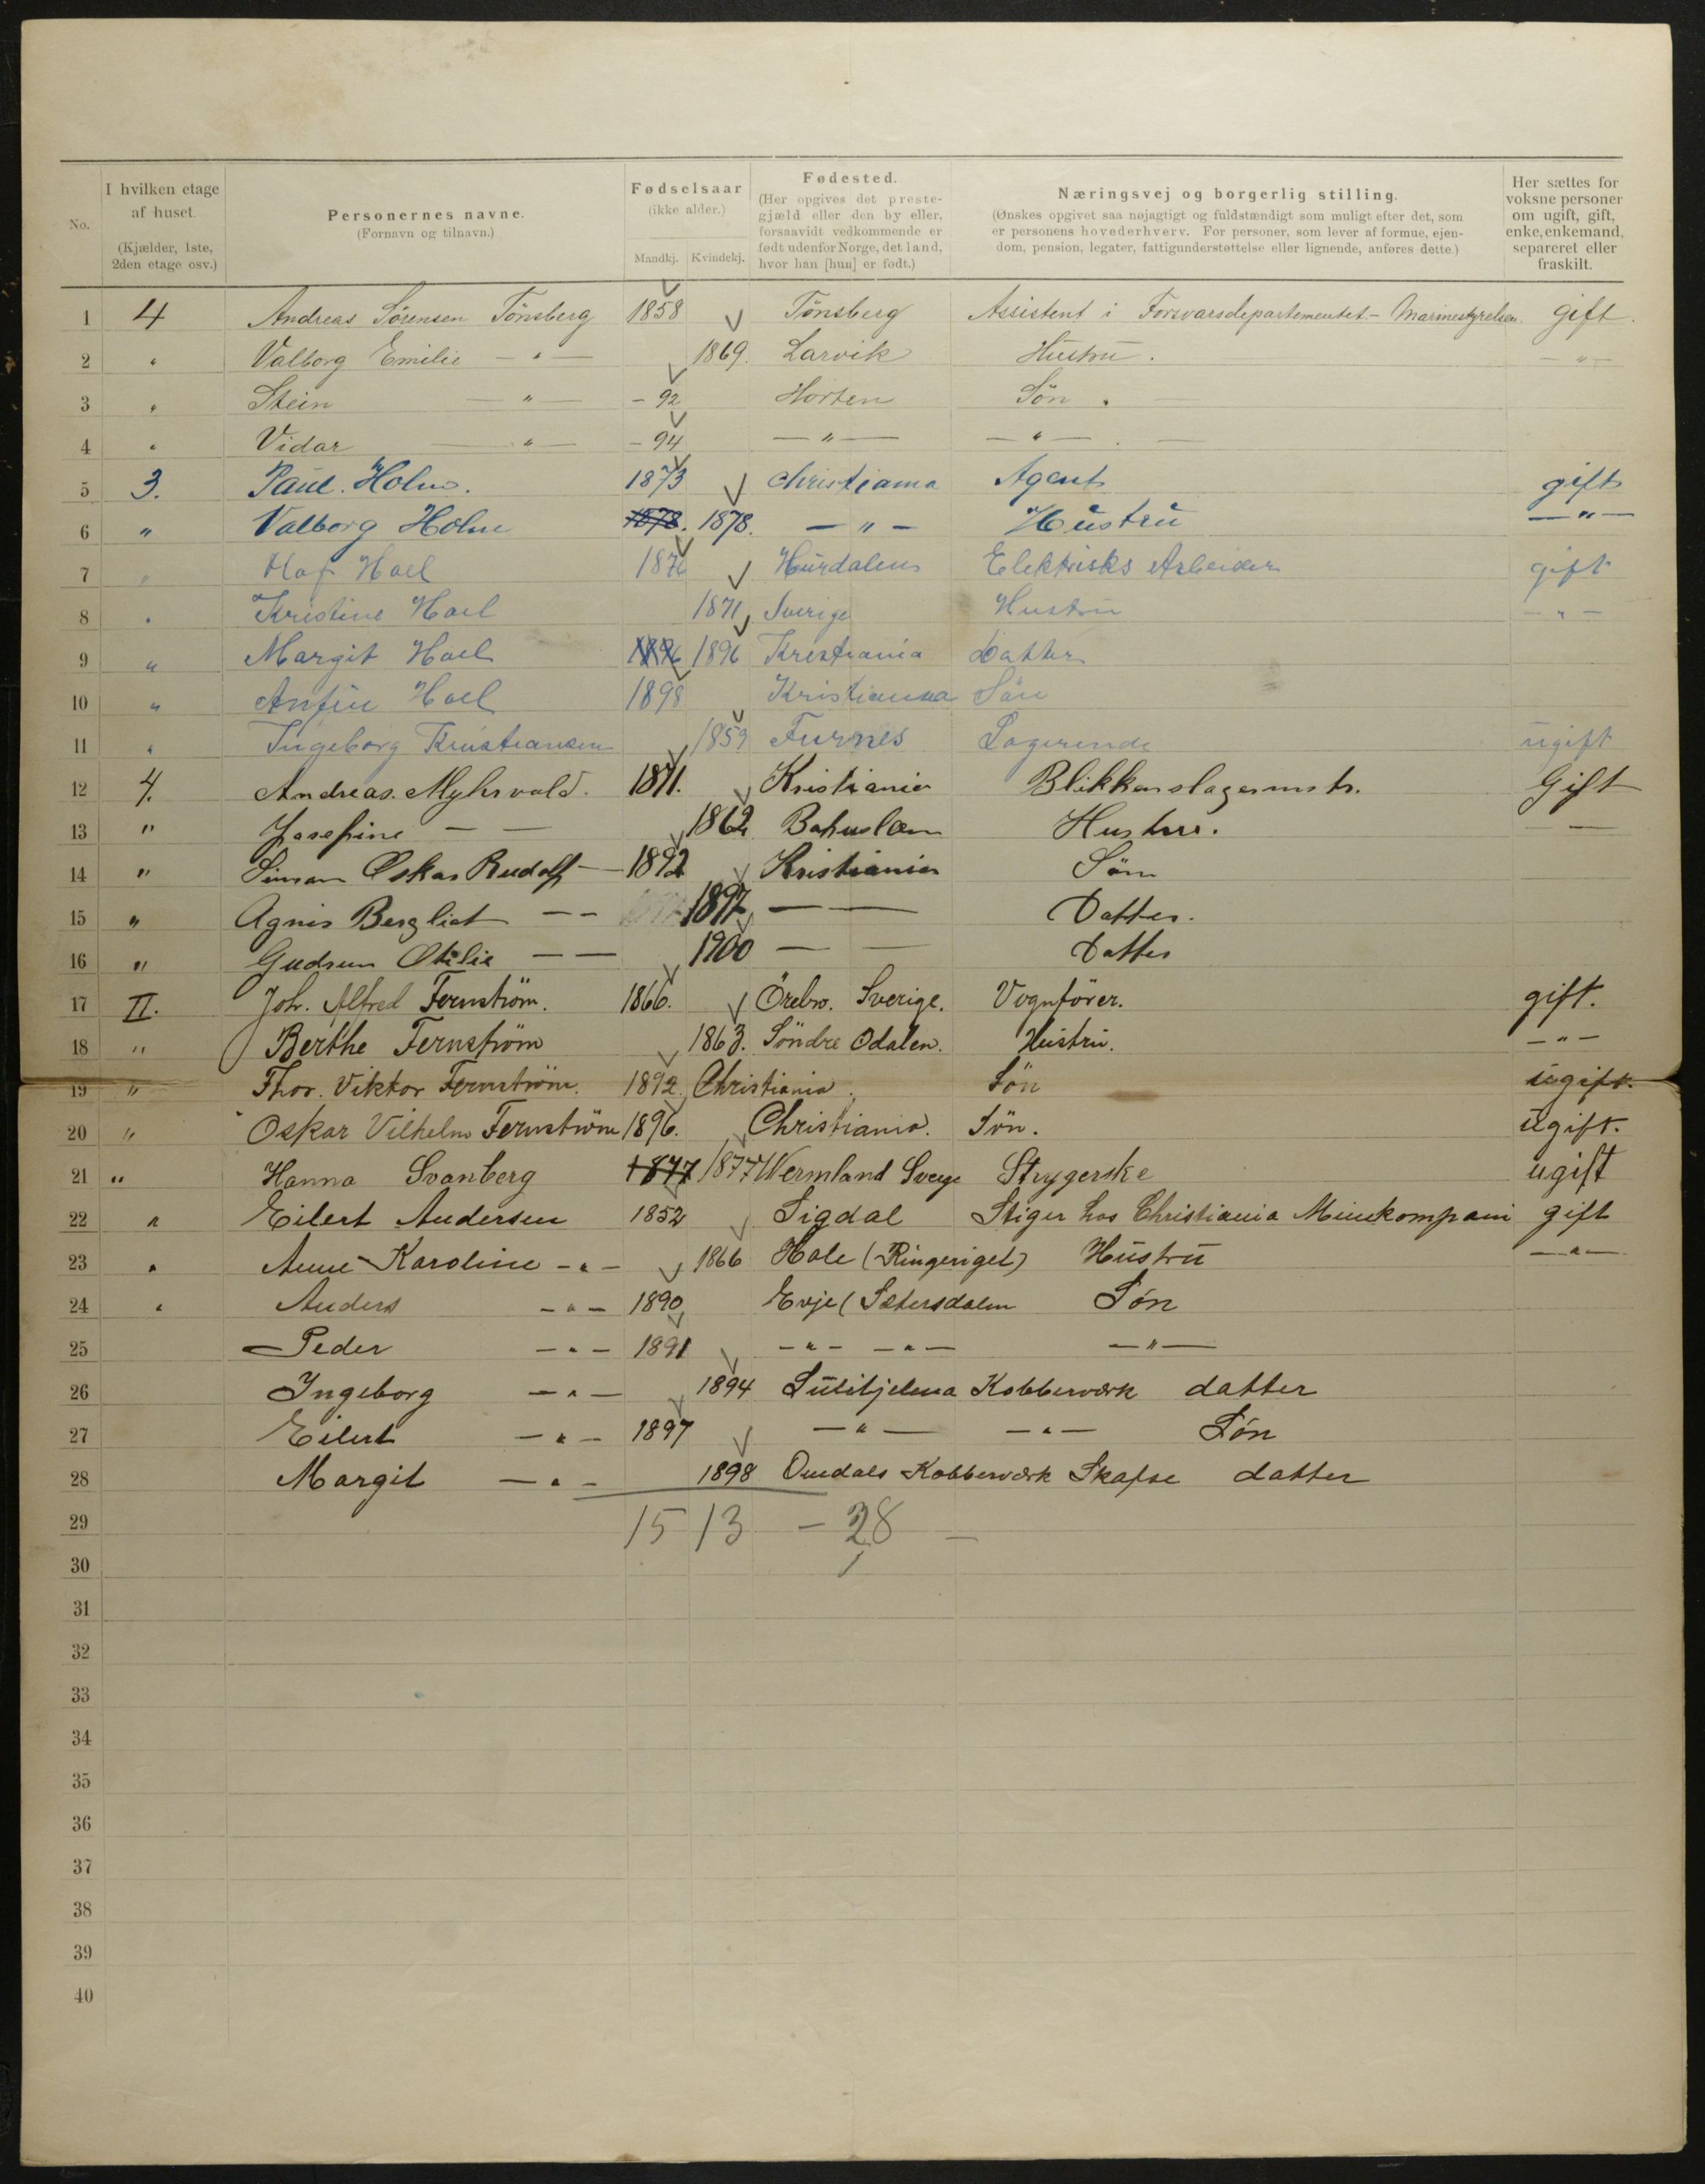 No. I hvilken etage af huset. (Kjælder, 1ste, 2den etage osv.) Personernes navne. (Fornavn og tilnavn.) Fødselsaar (ikke alder.) Mandkj. Kvindekj. Fødested. (Her opgives det prestegjæld eller den by eller, forsaavidt vedkommende er født udenfor Norge, det land, hvor han [hun] er født.) Næringsvej og borgerlig stilling. (Ønskes opgivet saa nøjagtigt og fuldstændigt som muligt efter det, som er personens hovederhverv. For personer, som lever af formue, ejendom, pension, legater, fattigunderstøttelse eller lignende, anføres dette.) Her sættes for voksne personer om ugift, gift, enke, enkemand, separeret eller fraskilt.
1 4 Andreas Sörensen Tönsberg 1858 Tönsberg Assistent i Forsvarsdepartementet - Marinestyrelsen. gift.
2 " Valborg Emilie — " — 1869. Larvik Hustrü. — " —
3 " Stein — " — - 92 Horten Sön.
4 " Vidar — " — - 94 — " — — " —.
5 3. Paül. Holm. 1873 Christiania Agent gift
6 " Valborg Holm 1878. 1878. — " — Hüstrü — " —
7 " Olaf Hoel 187 Hürdalen Elektrisks Arbeider gift
8 " Kristine Hoel 1871 Sverige Hustrü — " —
9 " Margit Hoel 1896 1896 Kristiania Datter
10 " Anfin Hoel 1898 Kristiania Sön
11 " Ingeborg Kristiansen 1859 Furnes Logerende ügift
12 4. Andreas. Myhrvold. 1871. Kristiania Blikkenslagermstr. Gift
13 " Josefine — — 1862 Bahuslæn Hustru. —
14 " Simon Oskar Rudolf — 1892 Kristiania Søn
15 " Agnes Bergliot — — 1897 — — Datter.
16 " Gudrun Otilie — — 1900 — — Datter
17 II. Joh. Alfred Fernström. 1866. Örebro. Sverige. Vognförer. gift.
18 " Berthe Fernström 1863. Söndre Odalen. Hüstrü. — " —
19 " Thor. Viktor Fernström. 1892. Christiania. Sön ügift.
20 " Oskar Vilhelm Fernström 1896. Christiania. Sön. ügift.
21 " Hanna Svanberg 1877 1877 Wermland Sverge Strygerske ugift
22 " Eilert Andersen 1852 Sigdal Stiger hos Christiania Minekompani gift
23 " Anne Karoline — " — 1866 Hole (Ringeriget) Hüstrü — " —
24 " Anders — " — 1890 Evje (Sætersdalen Sön
25 Peder — " — 1891 — " — — " — — " —
26 Ingeborg — " — 1894 Sülitjelma Kobberværk datter
27 Eilert — " — 1897 — " — — " — Sön
28 Margit — " — 1898 Omdals Kobberværk Skafse datter
29 15 13 — 28 —
30
31
32
33
34
35
36
37
38
39
40